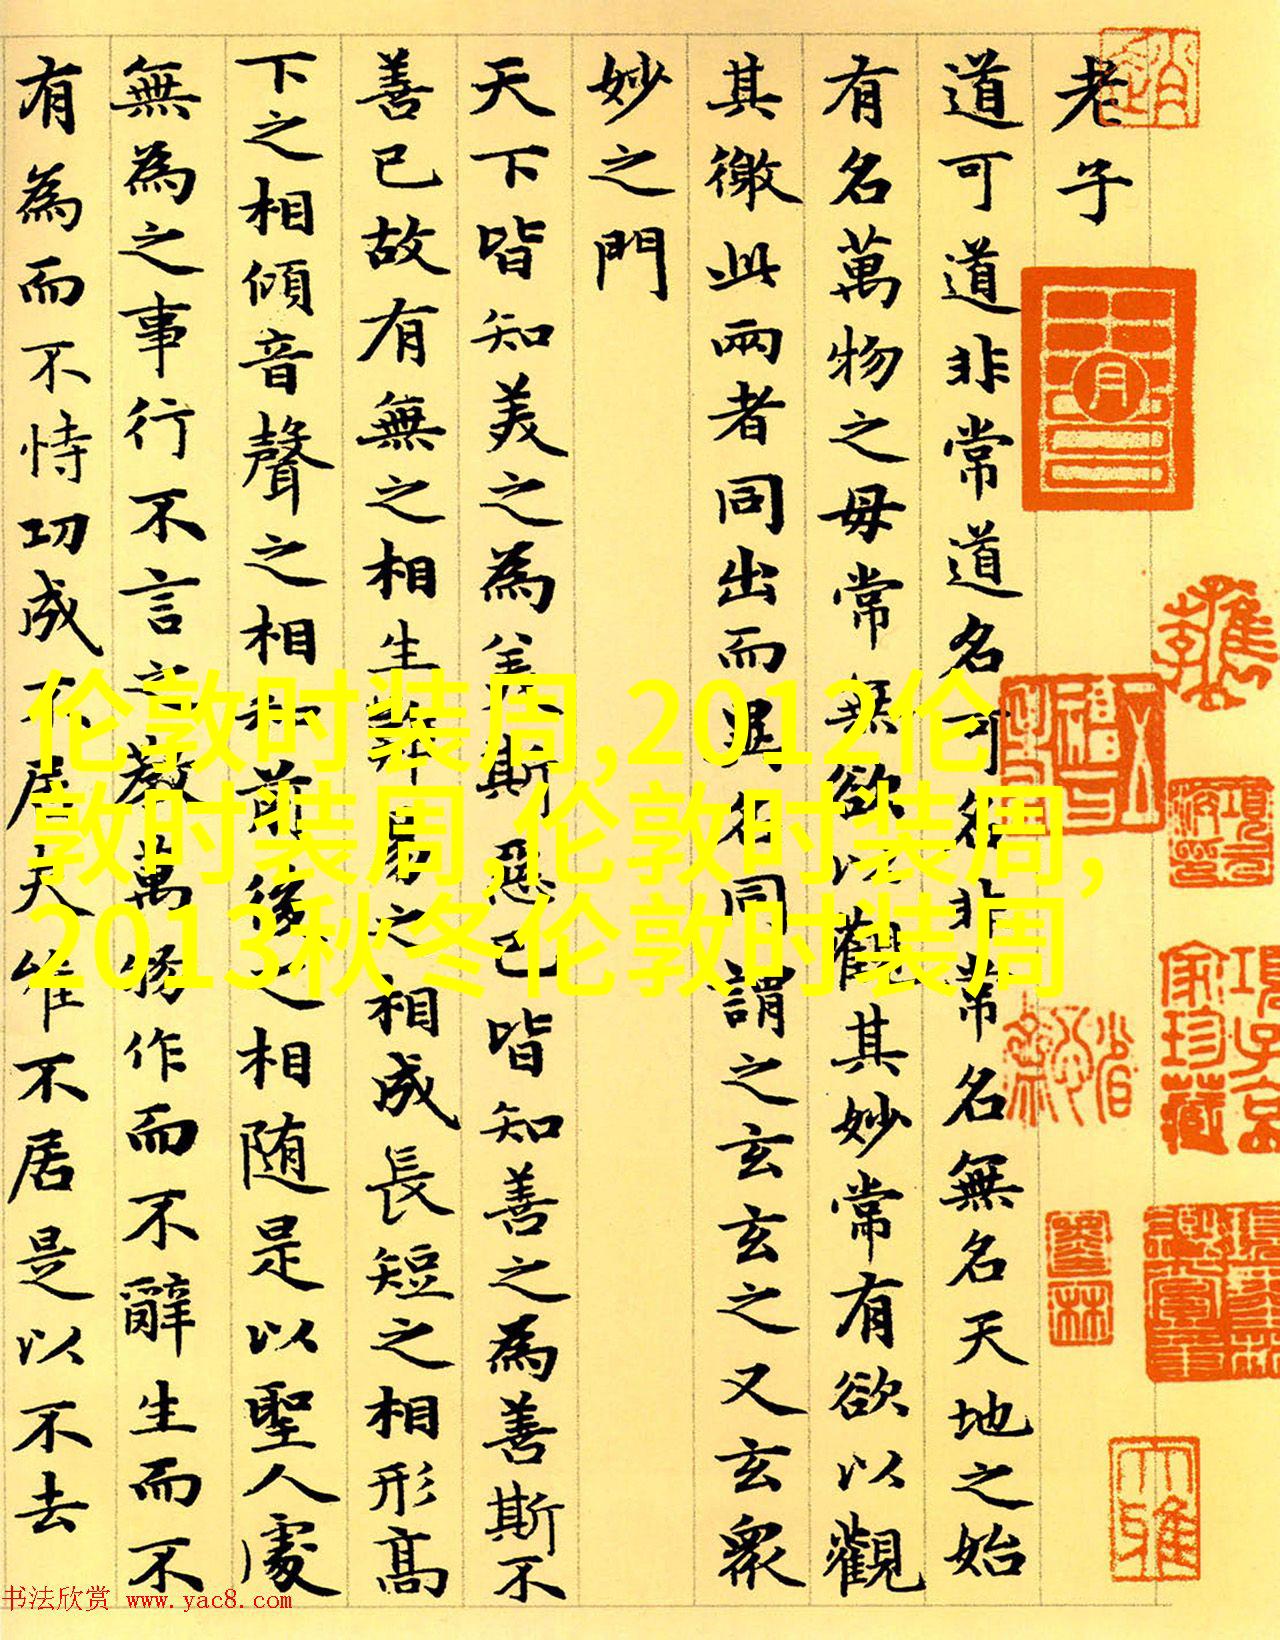 老子
道可道非常道名可名非常名無名天地之始
有名萬物之毋常無欲以觀其妙常有欲以觀
其徼此兩者同出而異名同謂之玄玄之又玄衆
妙之門
天下皆知美之為美斯惡已皆知善之為善斯不
善已故有無之相生難易之相成長短之相形高
下之相傾音聲之相和前後之相随是以聖人處
無為之事行不言之教萬物作而不辭生而不
有為而不恃功成不居夫惟不居是以不去
項子京
家珍藏
大雅
伦敦时装周,2012伦
敦时装周,伦敦时装周,
2013秋冬伦敦时装周
书法欣赏 www.yac8.com